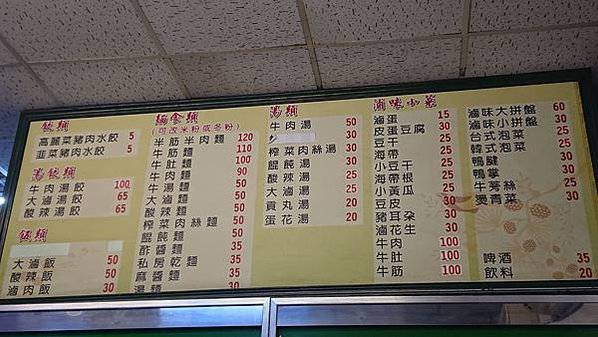 餃類
高麗菜豬肉水餃 5
韮菜豬肉水餃 5
湯餃類
牛肉湯餃 100
大滷湯餃 65
酸辣湯餃 65
飯類
大滷飯 50
酸辣飯 50
滷肉飯 30
麵食類
(可改米粉或冬粉)
半筋半肉麵 120
牛筋麵 110
牛肚麵 100
牛肉麵 90
牛湯麵 50
大滷麵 50
酸辣麵 50
榨菜肉絲麵 50
餛飩麵 50
酢醬麵 35
私房乾麵 35
麻醬麵 35
湯麵 30
湯類
牛肉湯 50
30
榨菜肉絲湯 50
餛飩湯 50
酸辣湯 25
大滷湯 25
貢丸湯 20
蛋花湯 20
滷味小菜
滷蛋 15
皮蛋豆腐 30
豆干 25
海帶 25
小豆干 25
海帶根 25
小黃瓜 25
豆皮 30
豬耳朵 30
滷花生 30
牛肉 100
牛肚 100
牛筋 100
滷味大拼盤 60
滷味小拼盤 30
台式泡菜 25
韓式泡菜 25
鴨腱 30
鴨掌 25
牛蒡絲 25
燙青菜 30
啤酒 35
飲料 20